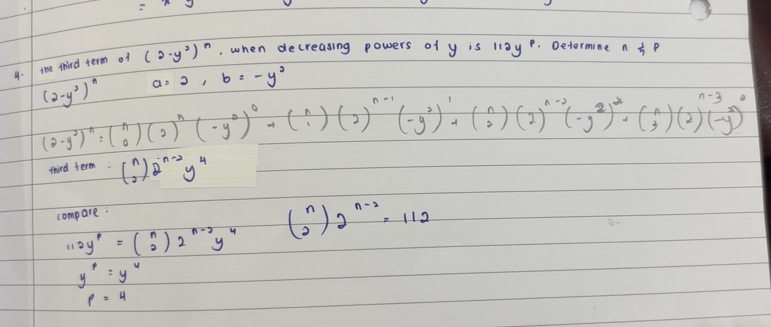 4. the third term of (2-y²)ⁿ, when decreasing powers of y is 112yᴾ. Determine n & p
(2-y²)ⁿ a=2, b=-y²
(2-y²)ⁿ = (n 0)(2)ⁿ(-y²)⁰ + (n 1)(2)ⁿ⁻¹(-y²)¹ + (n 2)(2)ⁿ⁻²(-y²)² + (n 3)(2)ⁿ⁻³(-y²)³
third term : (n 2)2ⁿ⁻²y⁴
compare :
112yᴾ = (n 2)2ⁿ⁻²y⁴ (n 2)2ⁿ⁻² = 112
yᴾ = y⁴
p = 4